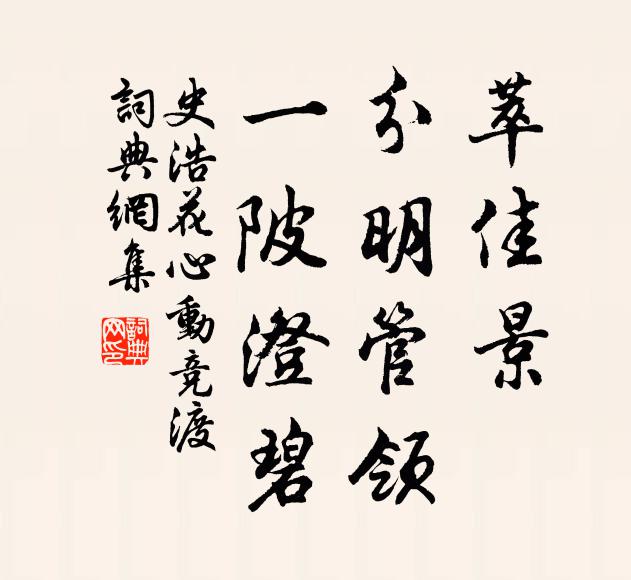 萃佳景
分明管領
一陂澄碧
史浩花心動競渡
詞典網集
詞典网印